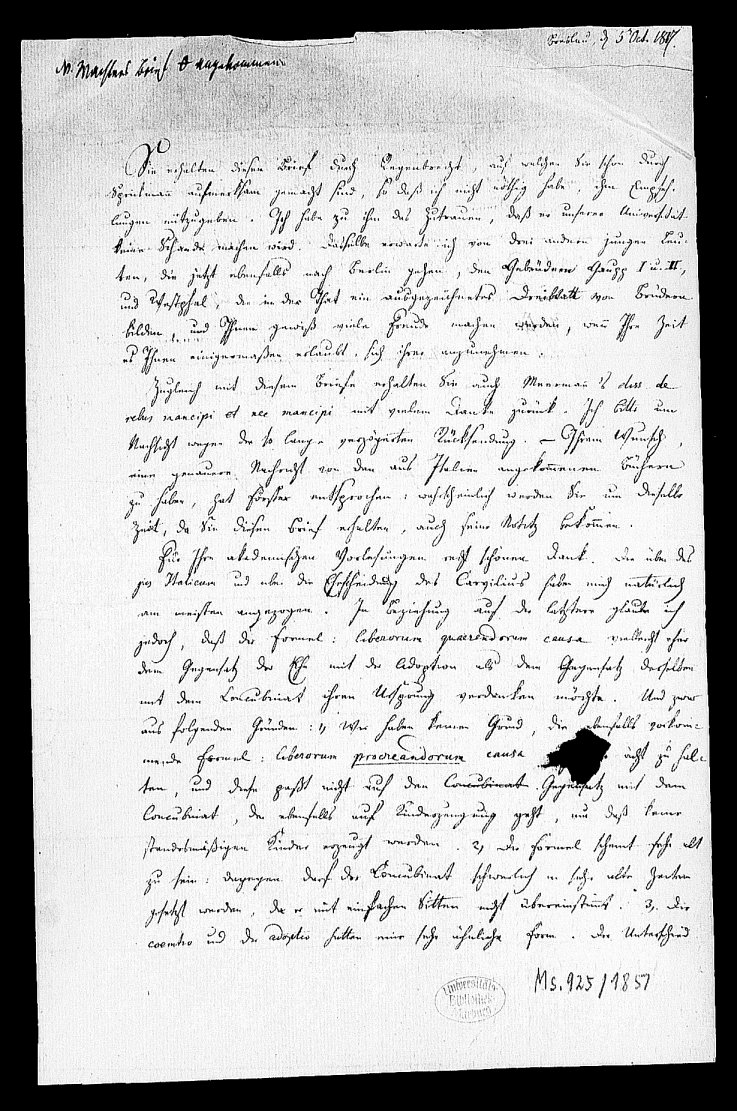 Breslau, d 5 Oct. 1817.
N. Wachters Brief angekommen
Sie erhalten diesen Brief durch Regenbrecht, auf welchen Sie schon durch
Sprickmann aufmerksam gemacht sind, so daß ich nicht nöthig habe, ihm Empfeh-
lungen mitzugeben. Ich habe zu ihm das Zutrauen, daß er unserer Universität
keine Schande machen wird. Dasselbe erwarte ich von drei andern jungen Leu-
ten, die jetzt ebenfalls nach Berlin gehen, den Gebrüdern Gaupp I u. II,
und Westphal, die in der That ein ausgezeichnetes Dreiblatt von Brüdern
bilden, und Ihnen gewiß viele Freude machen werden, wenn Ihre Zeit
es Ihnen einigermaßen erlaubt, sich ihrer anzunehmen.
Zugleich mit diesem Briefe erhalten Sie auch Meerman's diss de
rebus mancipi et nec mancipi mit vielem Danke zurück. Ich bitte um
Nachsicht wegen der so lange verzögerten Rücksendung. – Ihrem Wunsch,
eine genauere Nachricht von den aus Italien angekommenen Büchern
zu haben, hat Förster entsprochen: wahrscheinlich werden Sie um dieselbe
Zeit, da Sie diesen Brief erhalten, auch seine Notitz bekommen.
Für Ihre akademischen Vorlesungen recht schönen Dank. Die über das
jus Italicum und über die Ehescheidung des Carvilius haben mich natürlich
am meisten angezogen. In Beziehung auf die letztere glaube ich
jedoch, daß die Formel: liberorum quaerendorum causa vielleicht eher
dem Gegensatz der Ehe mit der Adoption als dem Gegensatz derselben
mit dem Concubinat ihren Ursprung verdanken möchte. Und zwar
aus folgenden Gründen: 1) Wir haben keinen Grund, die ebenfalls vorkom-
mende Formel: liberorum procreandorum causa ächt zu hal-
ten, und diese paßt nicht auf den Concubinat Gegensatz mit dem
Concubinat, der ebenfalls auf Kinderzeugung geht, nur daß keine
standesmäßigen Kinder erzeugt werden. 2) Die Formel scheint sehr alt
zu sein: dagegen darf der Concubinat schwerlich in sehr alte Zeiten
gesetzt werden, da er mit einfachen Sitten nicht übereinstimmt. 3, Die
coemtio und die adoptio hatten eine sehr ähnliche Form. Der Unterschied
Ms. 925/1851
Universitäts-
Bibliothek
Marburg